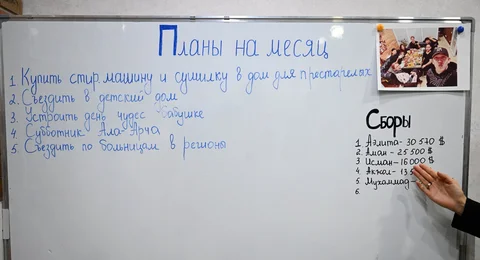 Планы на месяц
1. Купить стир. машину и сушилку в дом для престарелых
2. Съездить в детский дом
3. Устроить день чудес бабушке
4. Субботник Ала-Арча
5. Съездить по больницам в регионы
Сборы
1. Аэлита - 30 570 $
2. Аман - 25 500 $
3. Исман - 16 000 $
4. Акжол - 13
5. Мухаммад -
6.